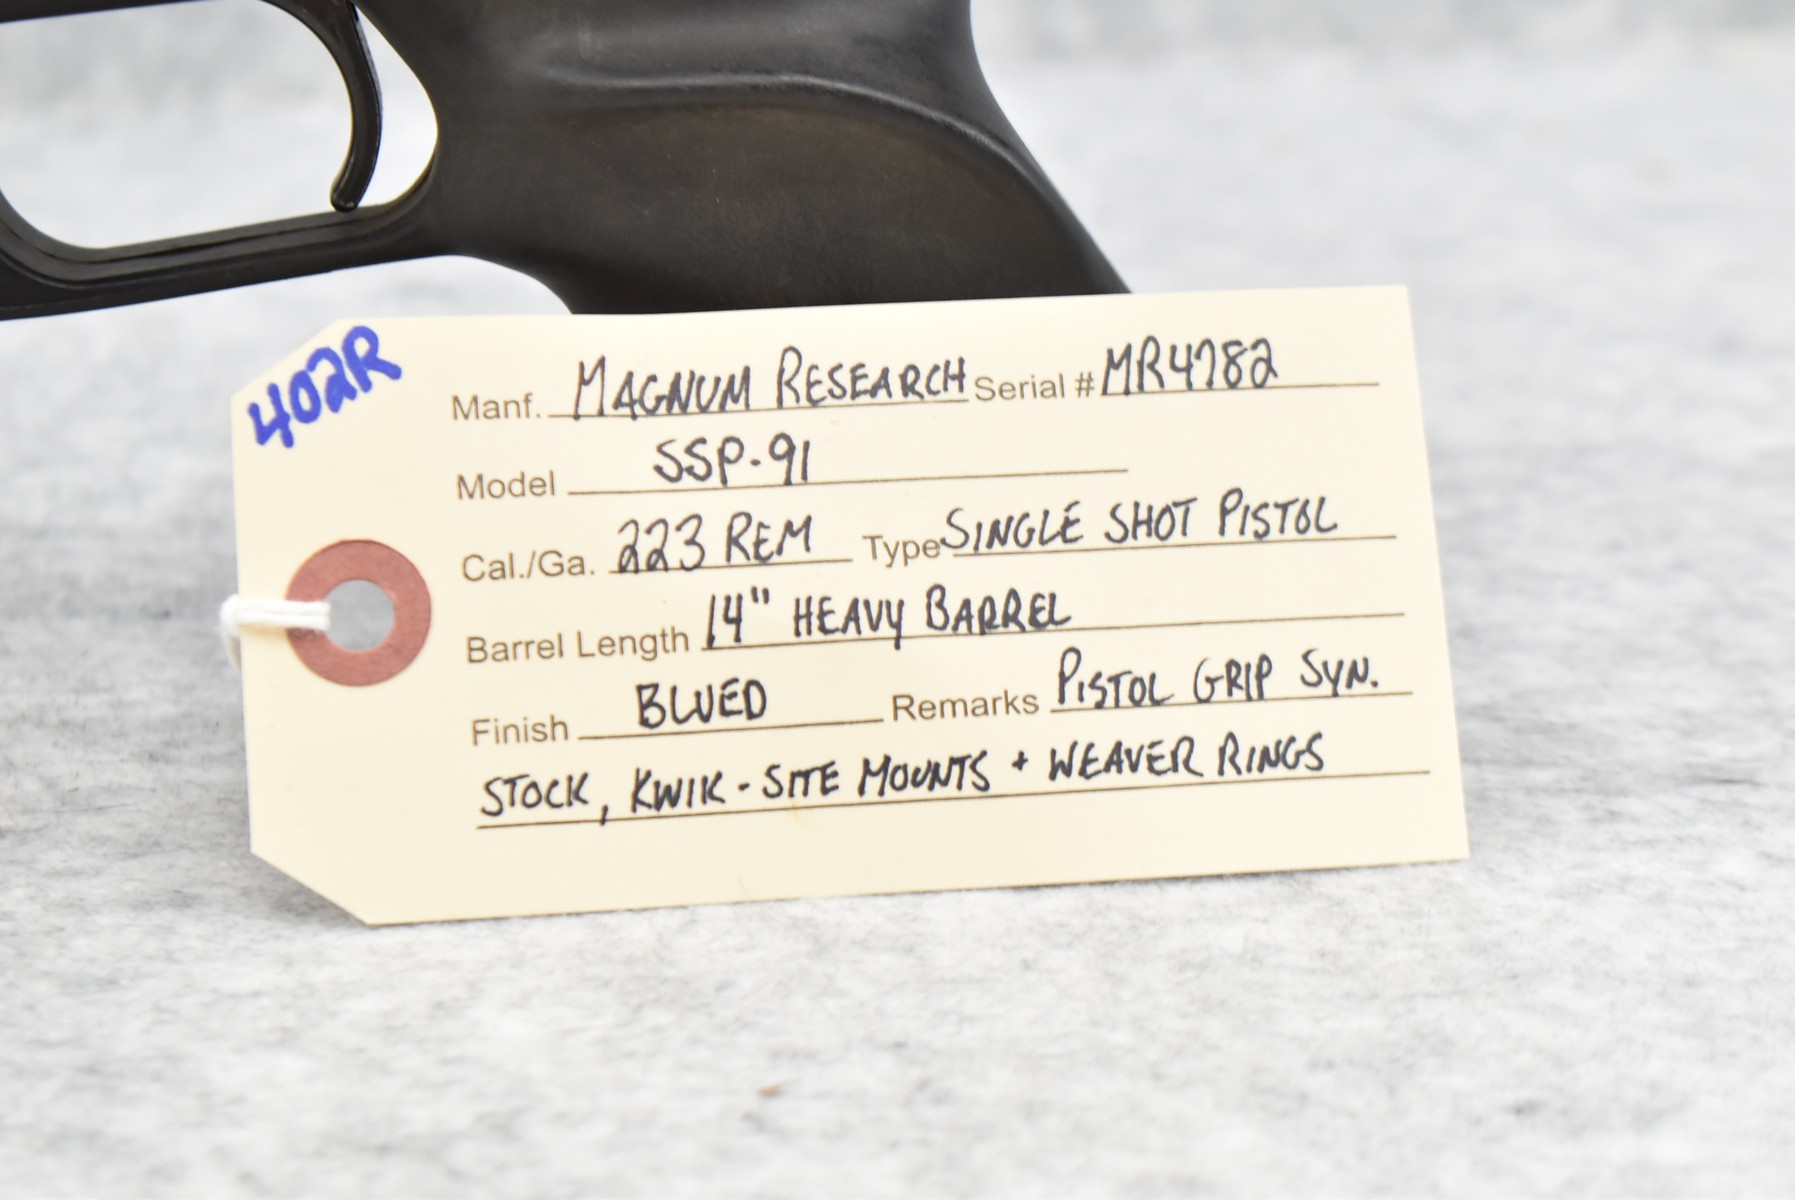 402R
Manf. MAGNUM RESEARCH Serial # MR4782
Model SSP-91
Cal./Ga. 223 REM Type SINGLE SHOT PISTOL
Barrel Length 14" HEAVY BARREL
Finish BLUED Remarks PISTOL GRIP SYN.
STOCK, KWIK-SITE MOUNTS + WEAVER RINGS